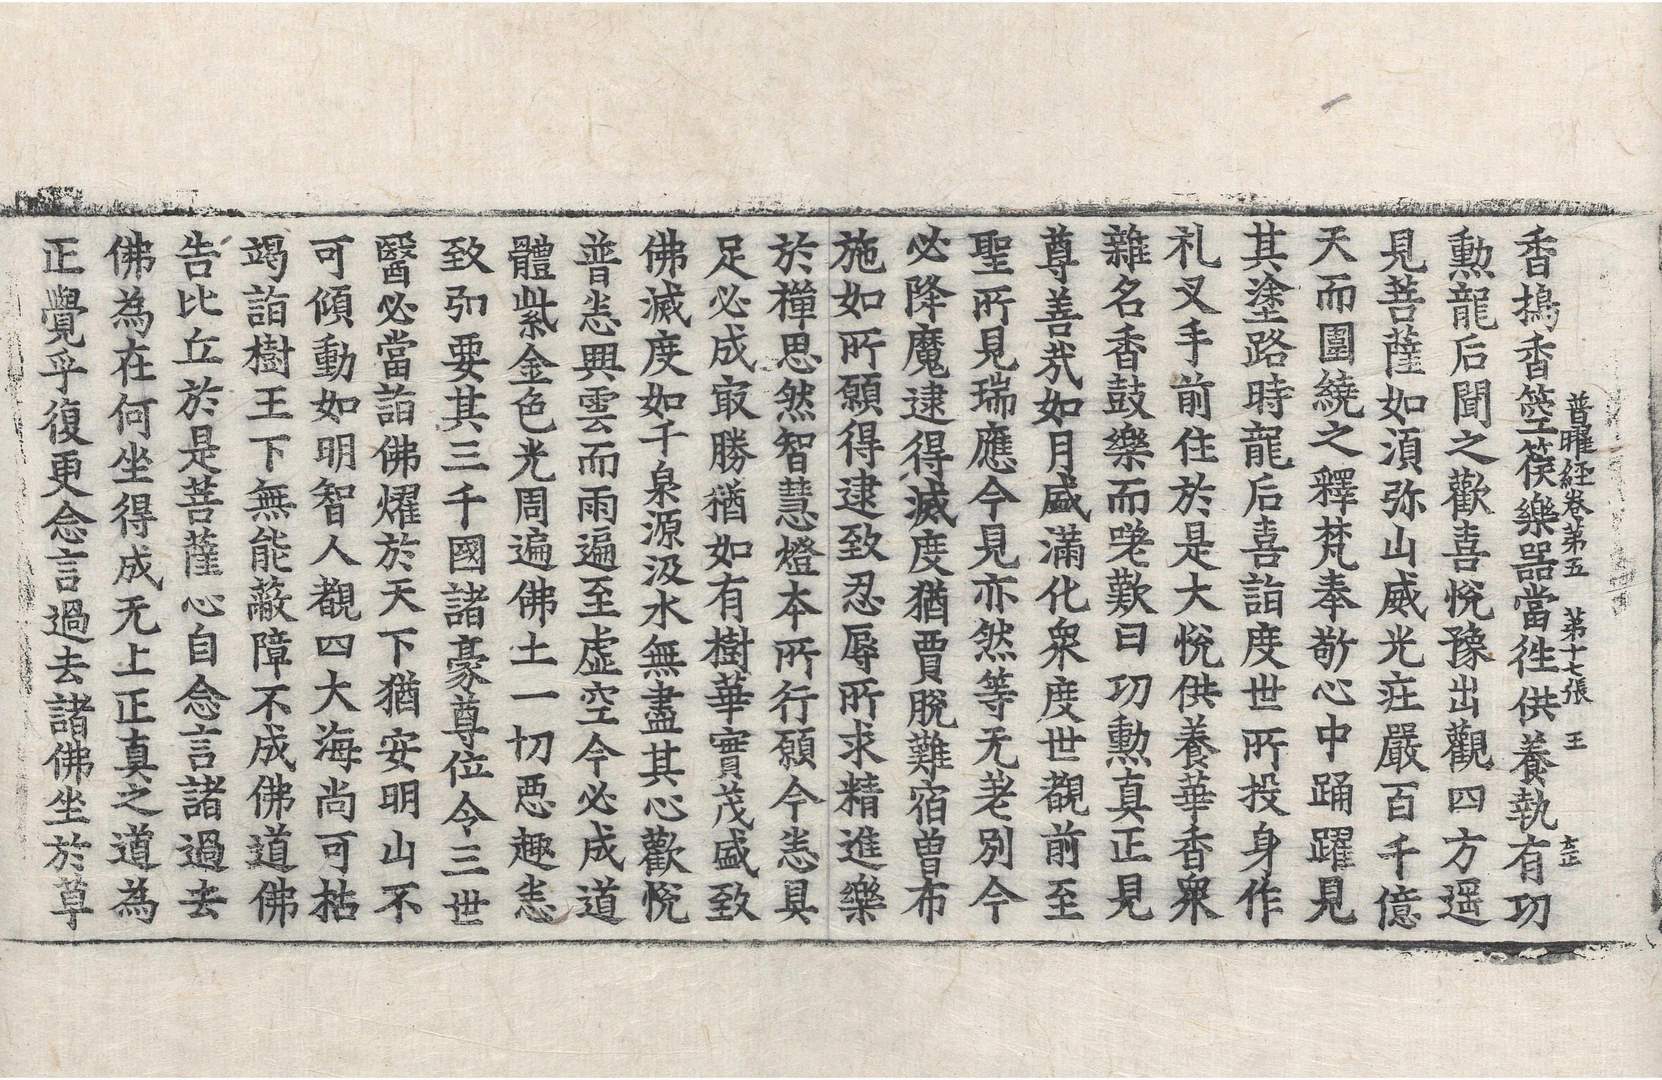 普曜経卷第五　第十七張　王
香搗香箜篌樂器當徃供養執有功
勳龍后聞之歡喜悅豫出觀四方遥
見菩薩如須弥山威光㽵嚴百千億
天而圍繞之釋梵奉敬心中踊躍見
其塗路時龍后喜詣度世所投身作
礼叉手前住於是大悅供養華香衆
雜名香鼓樂而嗟歎曰功勳真正見
尊善㢤如月盛滿化衆度世覩前至
聖所見瑞應今見亦然等无差別今
必降魔逮得滅度猶賈脫難宿曽布
施如所願得逮致忍辱所求精進樂
於禪思然智慧燈本所行願今悉具
足必成㝡勝猶如有樹華實茂盛致
佛滅度如千泉源汲水無盡其心歡悅
普悉興雲而雨遍至虛空今必成道
體紫金色光周遍佛土一切惡趣悉
致㧈要其三千國諸豪尊位今三世
醫必當詣佛燿於天下猶安明山不
可傾動如明智人覩四大海尚可枯
竭詣樹王下無能蔽障不成佛道佛
告比丘於是菩薩心自念言諸過去
佛為在何坐得成无上正真之道為
正覺乎復更念言過去諸佛坐於草